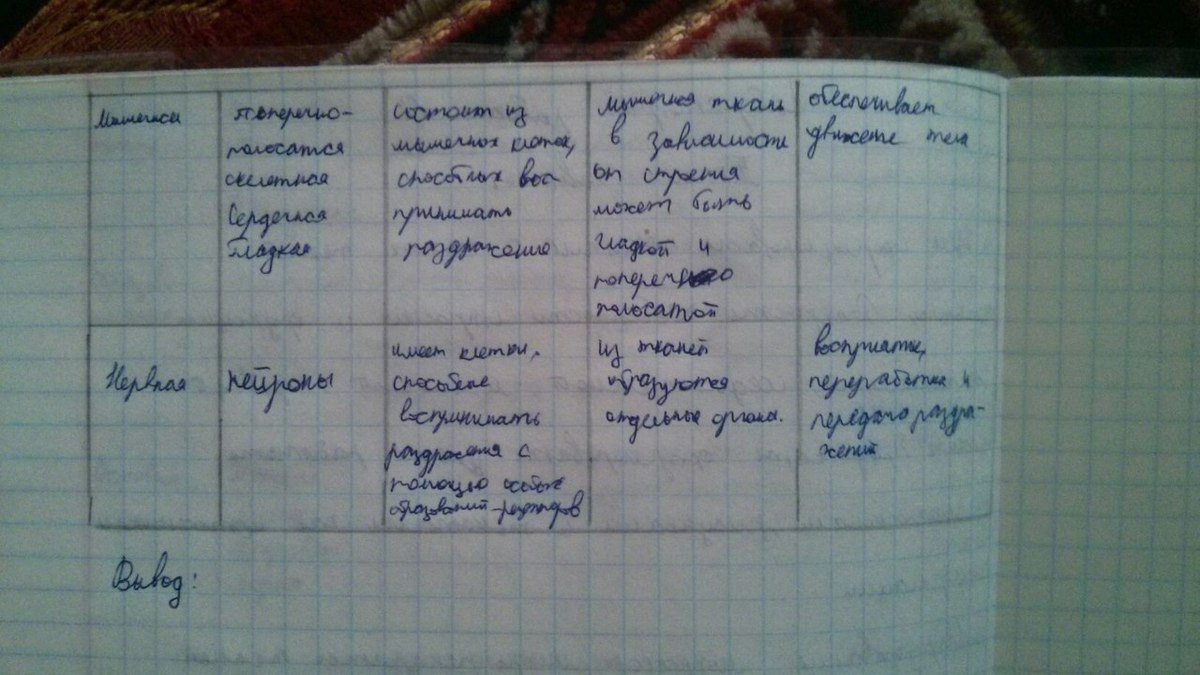 Мышечная
поперечно-
полосатая
скелетная
Сердечная
Гладкая
состоит из
мышечных клеток,
способных вос-
принимать
раздражение
мышечная ткань
в зависимости
от строения
может быть
гладкой и
поперечно
полосатой
обеспечивает
движение тела
Нервная
нейроны
имеет клетки,
способные
воспринимать
раздражения с
помощью особых
образований-рецепторов
из тканей
образуются
отдельные органы.
восприятие,
переработка и
передача раздра-
жений
Вывод: